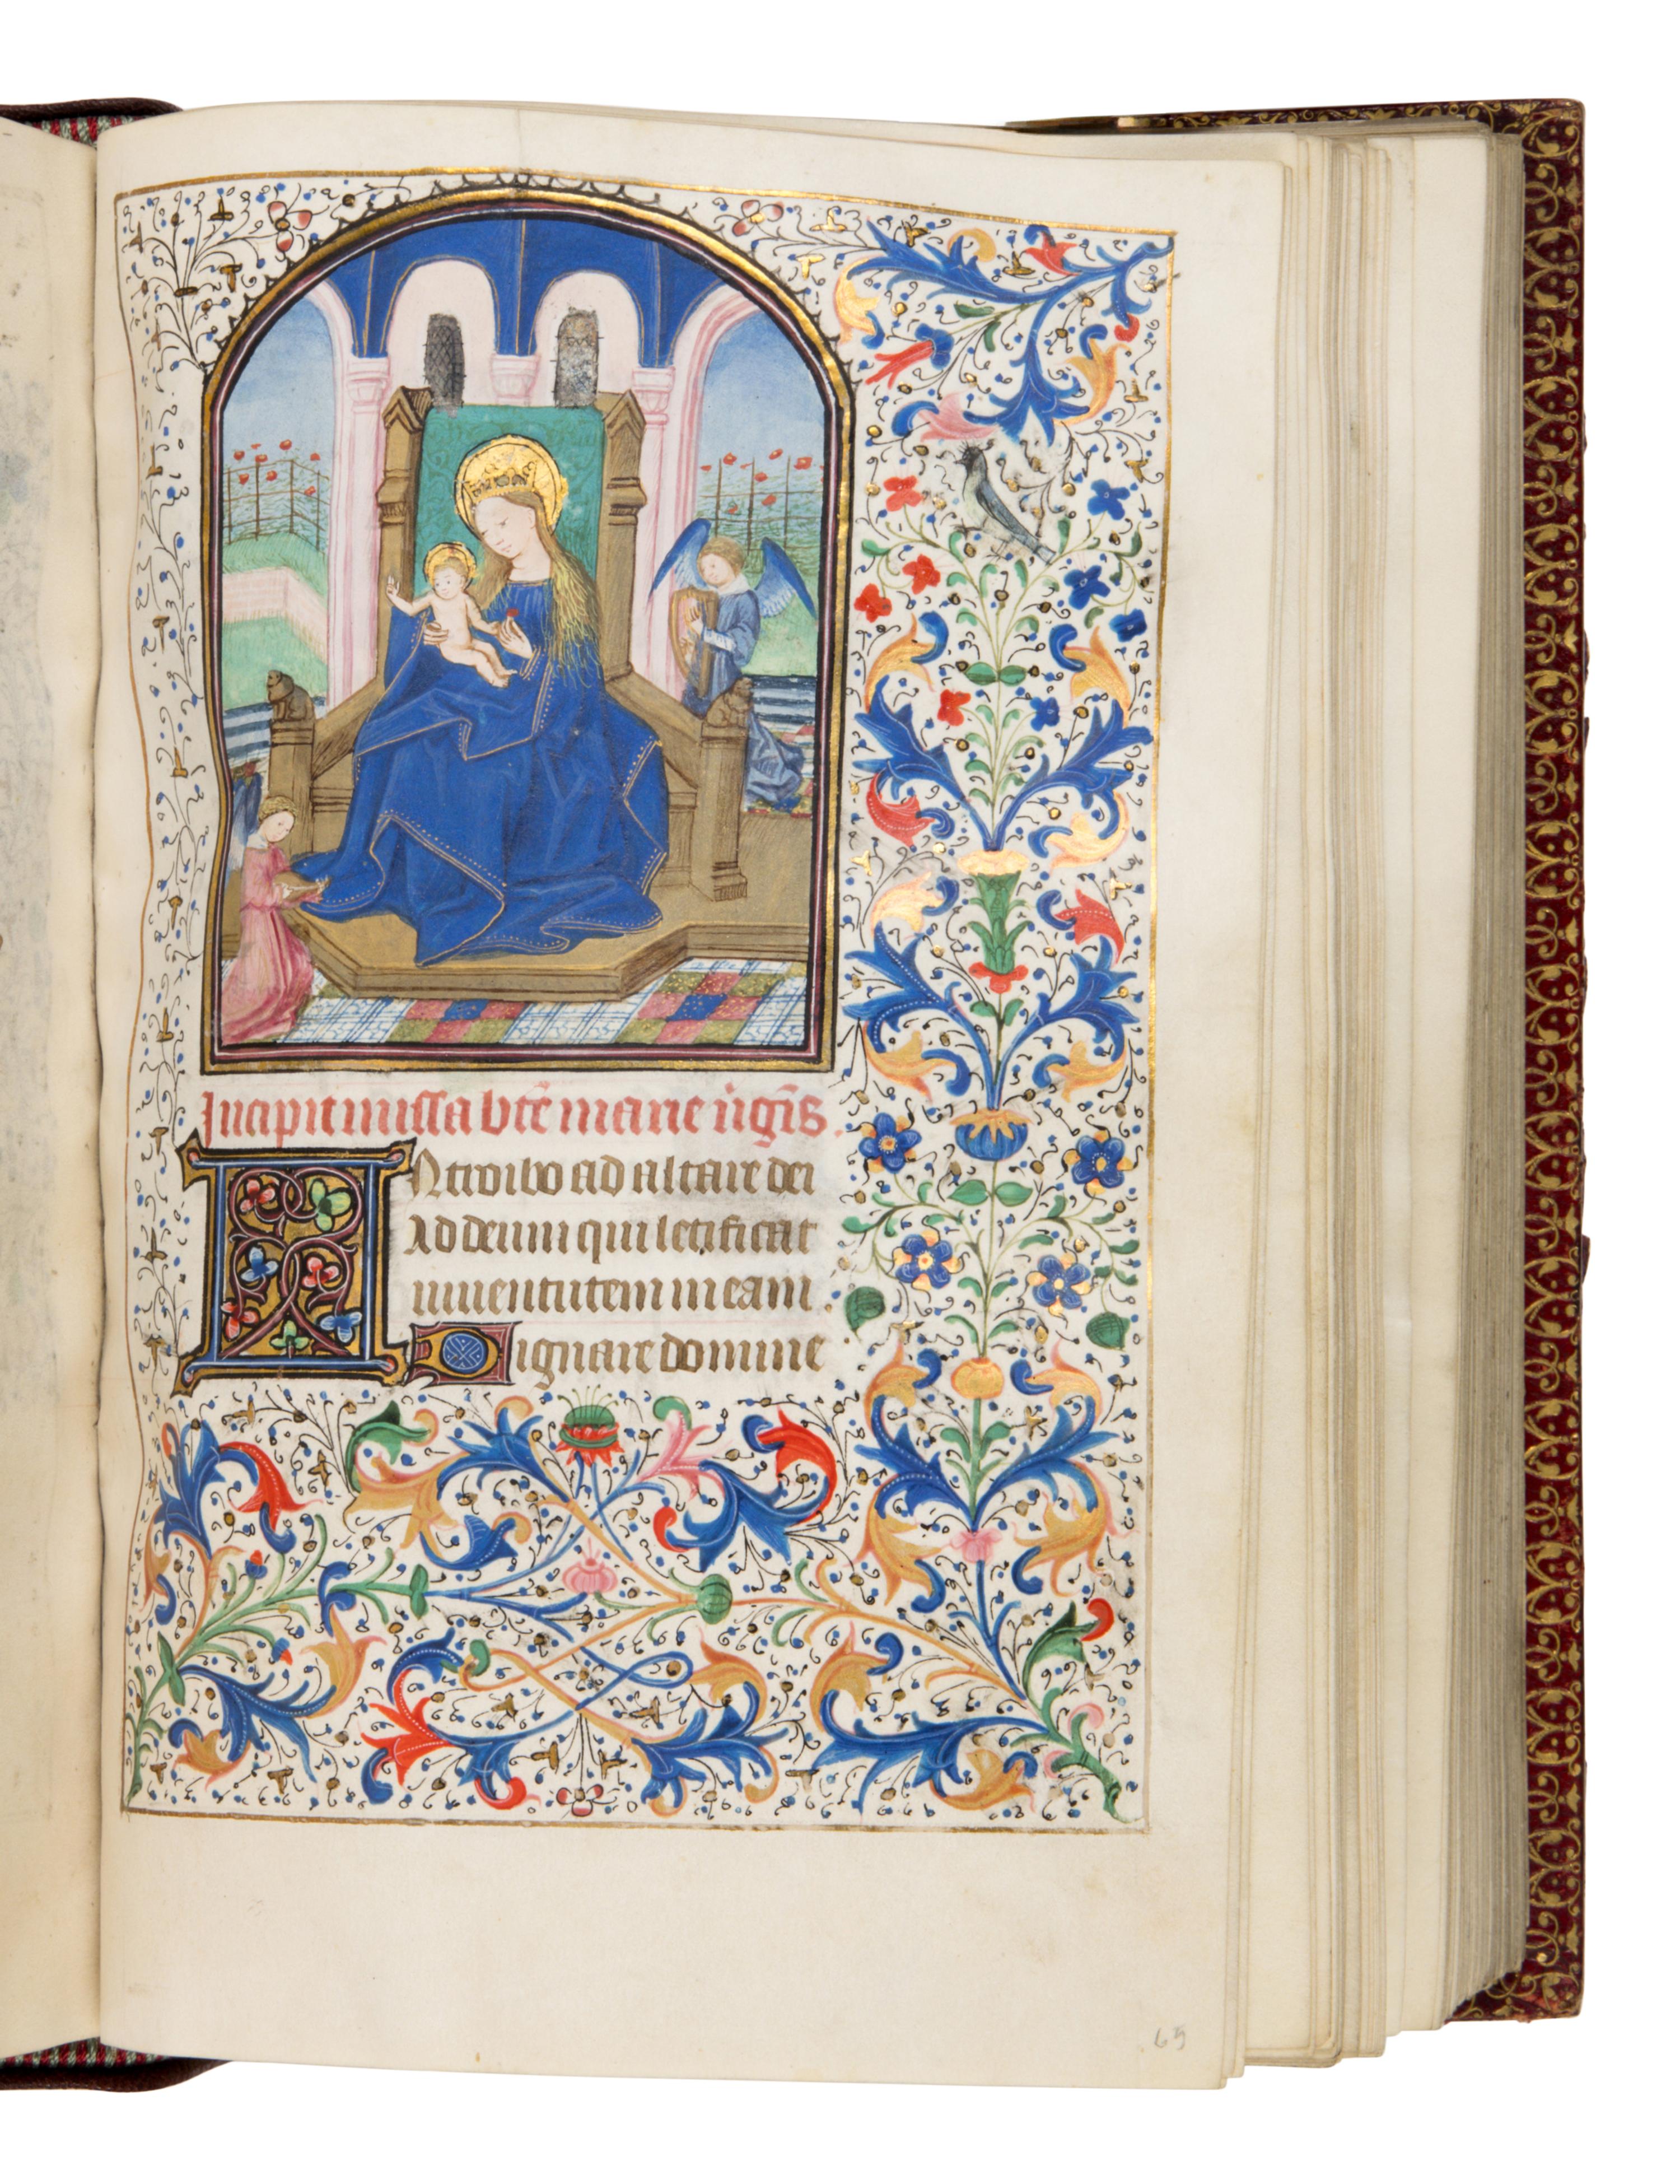 Incipit missa bt̄e marie v̓gīs.
INtroibo ad altare dei
Ad deum qui letificat
iuuentutem meam.
Dignare domine
65